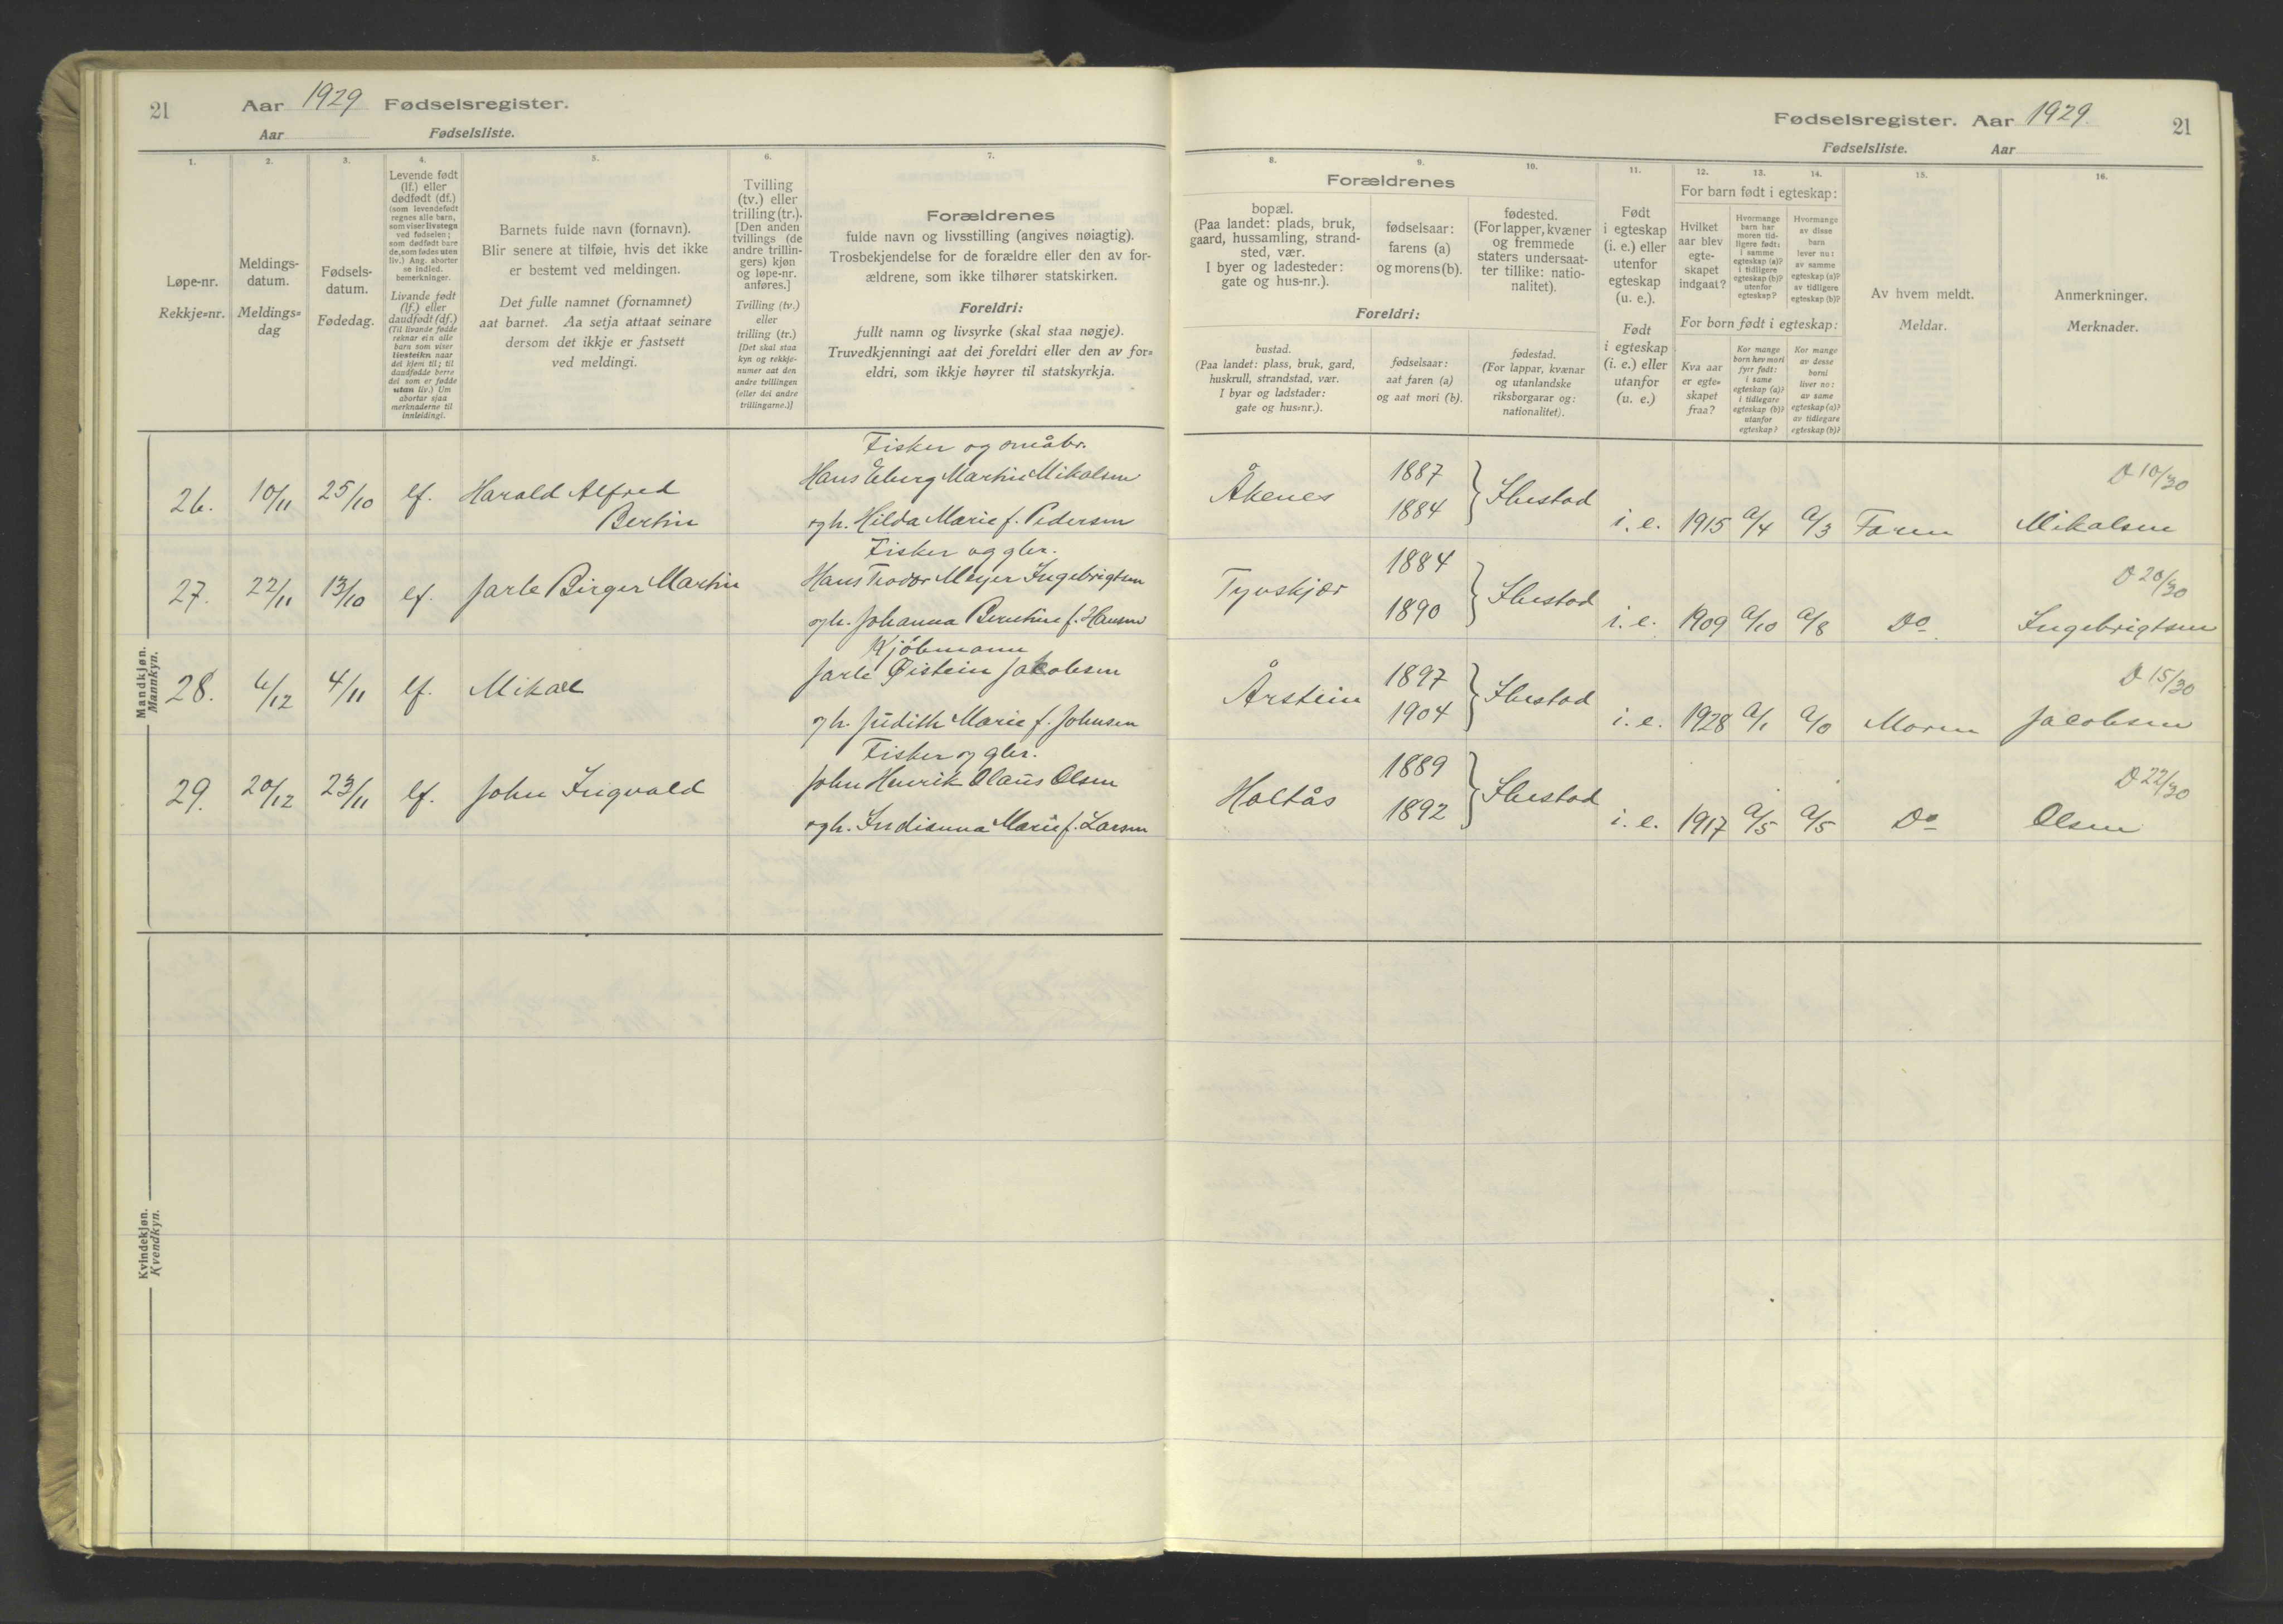 21 Aar 1929 Fødselsregister.
Aar Fødselsliste.
1.
2.
3.
4.
5.
6.
7.
Løpe-nr.
Rekkje=nr.
Meldings-
datum.
Meldings=
dag
Fødsels-
datum.
Fødedag.
Levende født
(lf.) eller
dødfødt (df.)
(som levendefødt
regnes alle barn,
som viser livstegn
ved fødselen;
som dødfødt bare
de, som fødes uten
liv.) Ang. aborter
se indled.
bemerkninger.
Livande født
(lf.) eller
daudfødt (df.)
(Til livande fødde
reknar ein alle
barn som viser
livsteikn naar
dei kjem til; til
daudfødde berre
dei som er fødde
utan liv.) Um
abortar sjaa
merknaderne til
innleidingi.
Barnets fulde navn (fornavn).
Blir senere at tilføie, hvis det ikke
er bestemt ved meldingen.
Det fulle namnet (fornamnet)
aat barnet. Aa setja attaat seinare
dersom det ikkje er fastsett
ved meldingi.
Tvilling
(tv.) eller
trilling (tr.).
[Den anden
tvillings (de
andre trillin-
gers) kjøn
og løpe-nr.
anføres.]
Tvilling (tv.)
eller
trilling (tr.)
[Det skal staa
kyn og rekkje-
numer aat den
andre tvillingen
(eller dei andre
trillingarne.)]
Forældrenes
fulde navn og livsstilling (angives nøiagtig).
Trosbekjendelse for de forældre eller den av for-
ældrene, som ikke tilhører statskirken.
Foreldri:
fullt namn og livsyrke (skal staa nøgje).
Truvedkjenningi aat dei foreldri eller den av for=
eldri, som ikkje høyrer til statskyrkja.
Mandkjøn.
Mannkyn.
Fisker og småbr.
26. 10/11 25/10 lf. Harald Alfred
Bertin
Hans Eberg Martin Mikalsen
og h. Hilda Marie f. Pedersen
Fisker og gbr.
27. 22/11 13/10 lf. Jarle Birger Martin
Hans Teodor Meyer Ingebrigtsen
og h. Johanna Berntine f. Hansen
Kjøbmann
28. 6/12 4/11 lf. Mikael
Jarle Øistein Jakobsen
og h. Judith Marie f. Johnsen
Fisker og gbr.
29. 20/12 23/11 lf. John Ingvald
John Henrik Olaus Olsen
og h. Indianna Marie f. Larsen
Kvindekjøn.
Kvendkyn.
Fødselsregister. Aar 1929. 21
Fødselsliste. Aar
8.
9.
10.
11.
12.
13.
14.
15.
16.
Forældrenes
bopæl.
(Paa landet: plads, bruk,
gaard, hussamling, strand-
sted, vær.
I byer og ladesteder:
gate og hus-nr.).
fødselsaar:
farens (a)
og morens (b).
fødested.
(For lapper, kvæner
og fremmede
staters undersaat-
ter tillike: natio-
nalitet).
Foreldri:
bustad.
(Paa landet: plass, bruk, gard,
huskrull, strandstad, vær.
I byar og ladstader:
gate og hus=nr.).
fødselsaar:
aat faren (a)
og aat mori (b).
fødestad.
(For lappar, kvænar
og utanlandske
riksborgarar og:
nationalitet).
Født
i egteskap
(i. e.) eller
utenfor
egteskap
(u. e.).
Født
i egteskap
(i. e.) eller
utanfor
(u. e.)
For barn født i egteskap:
Hvilket
aar blev
egte-
skapet
indgaat?
Hvormange
barn har
moren tid-
ligere født:
i samme
egteskap (a)?
i tidligere
egteskap (b)?
utenfor
egteskap?
Hvormange
av disse
barn
lever nu:
av samme
egteskap (a)?
av tidligere
egteskap (b)?
For born født i egteskap:
Kva aar
er egte=
skapet
fraa?
Kor mange
born hev mori
fyrr født:
i same
egteskap (a)?
i tidlegare
egteskap (b)?
utanfor
egteskap?
Kor mange
av desse
borni
liver no:
av same
egteskap (a)?
av tidlegare
egteskap (b)?
Av hvem meldt.
Meldar.
Anmerkninger.
Merknader.
Åkenes 1887 1884 } Ibestad i. e. 1915 a/4 a/3 Faren Mikalsen
D 10/30
Tyvskjær 1884 1890 } Ibestad i. e. 1909 a/10 a/8 Do Ingebrigtsen
D 20/30
Årstein 1897 1904 } Ibestad i. e. 1928 a/1 a/0 Moren Jacobsen
D 15/30
Holtås 1889 1892 } Ibestad i. e. 1917 a/5 a/5 Do Olsen
D 22/30